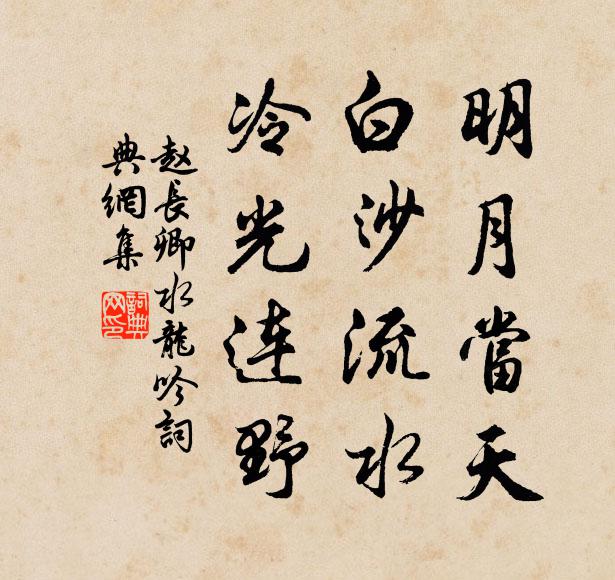 明月當天
白沙流水
冷光連野
赵長卿水龍吟詞
典網集
詞典网印